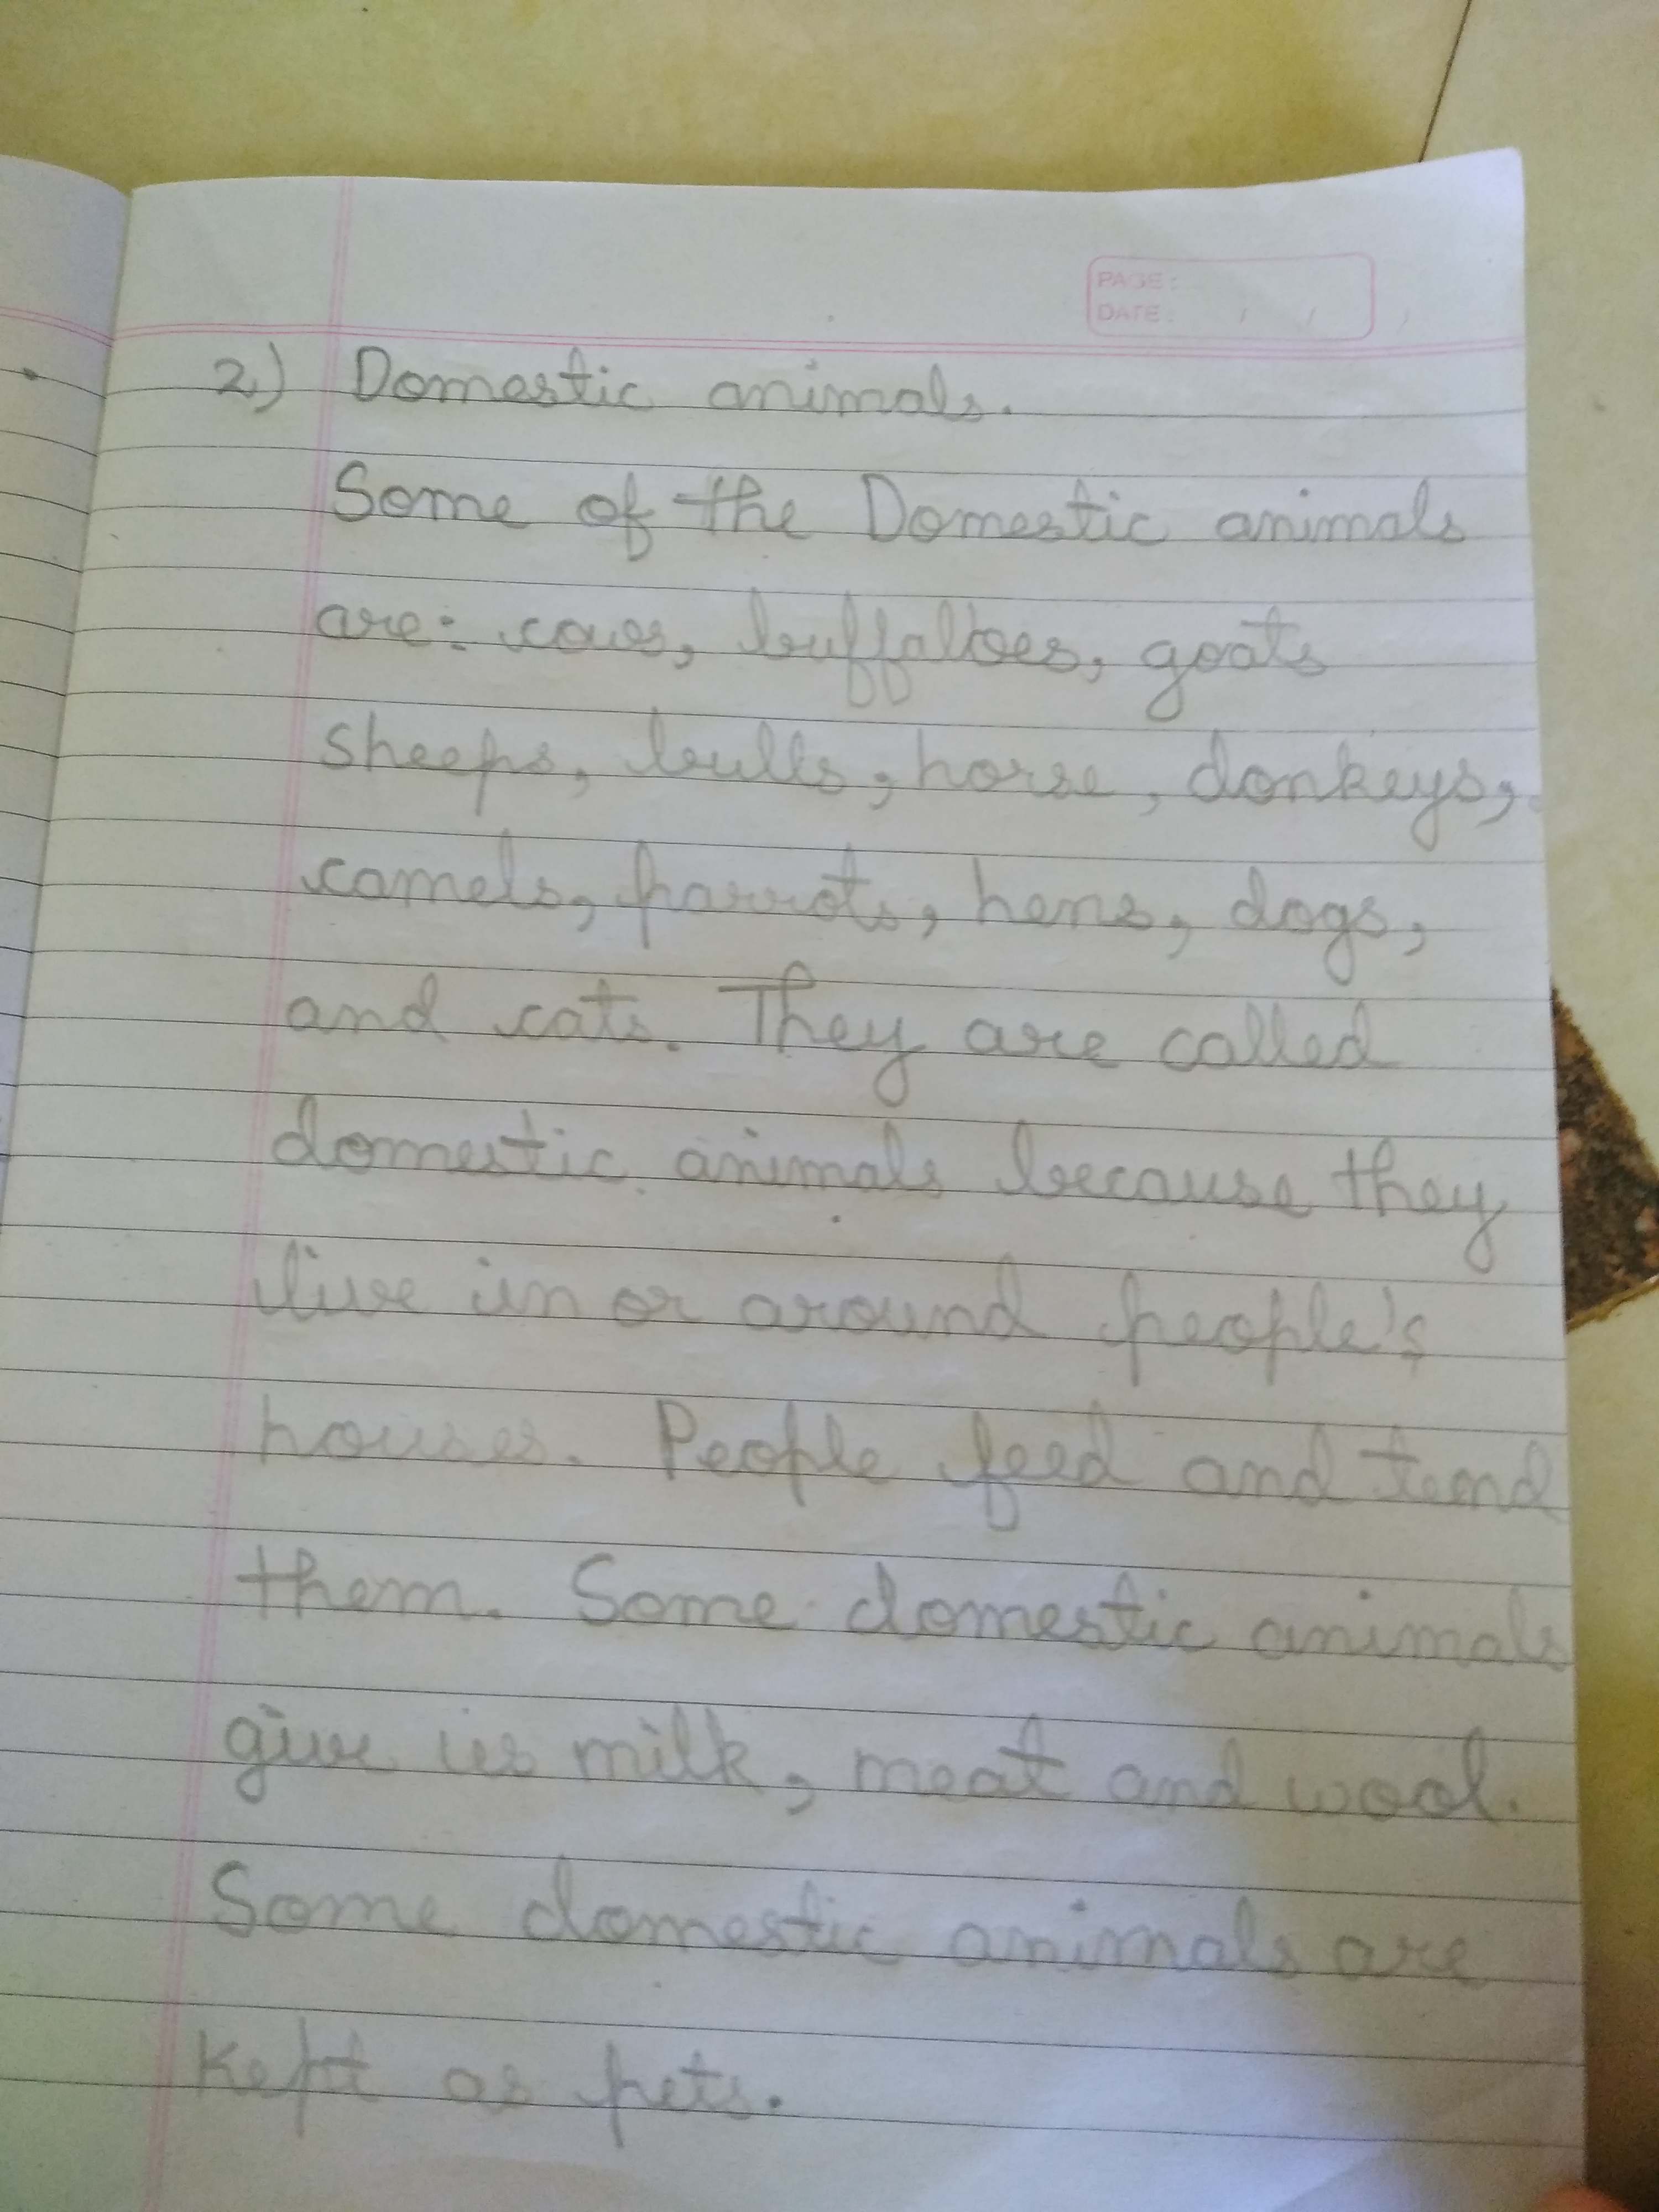 PAGE:
DATE: / /
2) Domestic animals.
Some of the Domestic animals
are: cows, buffaloes, goats
sheeps, bulls, horse, donkeys,
camels, parrots, hens, dogs,
and cats. They are called
domestic animals because they
live in or around people's
houses. People feed and tend
them. Some domestic animals
give us milk, meat and wool.
Some domestic animals are
kept as pets.